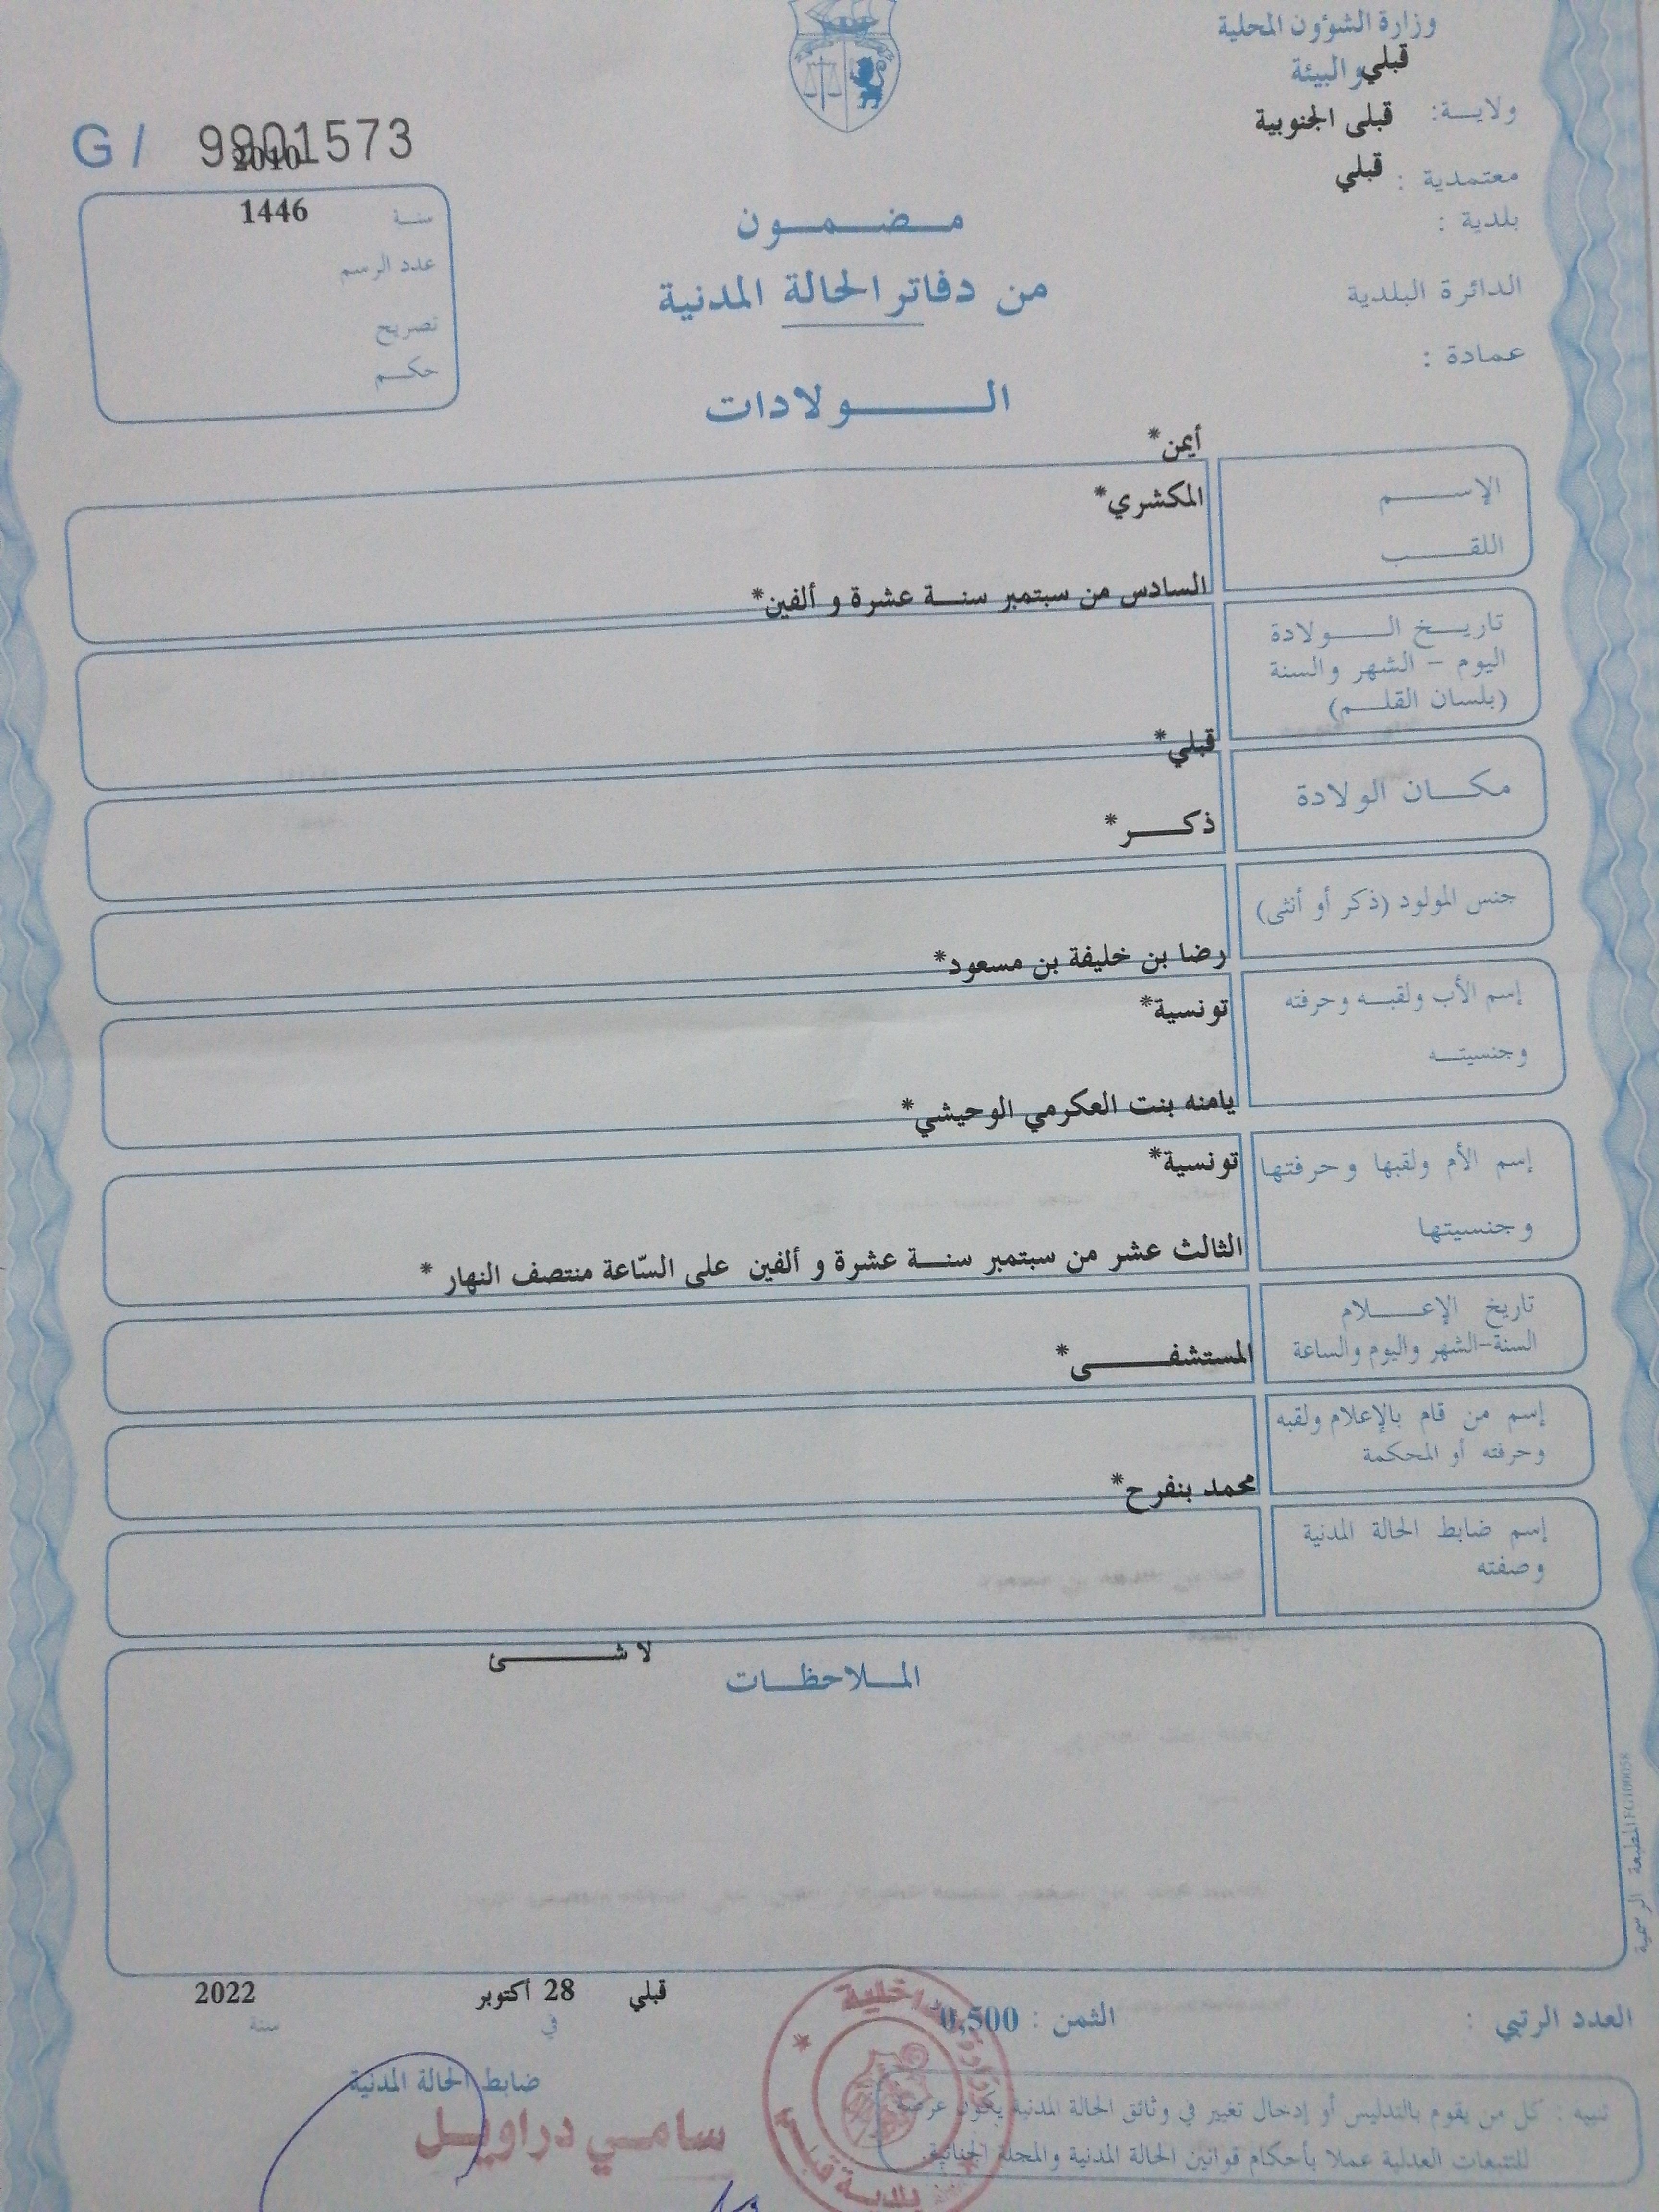 وزارة الشؤون المحلية
والبيئة
قبلي
ولايـــة: قبلى الجنوبية
معتمدية : قبلي
بلدية :
الدائرة البلدية
عمادة :
G / 9901573
2010
سنــة 1446
عدد الرسم
تصريح
حكــم
مــضــمــون
من دفاتر الحالة المدنية
الــــولادات
أيمن*
الإســـم
المكشري*
اللقــب
السادس من سبتمبر سنــة عشرة و ألفين*
تاريــخ الــــولادة
اليوم – الشهر والسنة
(بلسان القلــم)
قبلي*
مكـــان الولادة
ذكـــر*
جنس المولود (ذكر أو أنثى)
رضا بن خليفة بن مسعود*
إسم الأب ولقبــه وحرفته
تونسية*
وجنسيتــه
يامنه بنت العكرمي الوحيشي*
إسم الأم ولقبها وحرفتها
تونسية*
وجنسيتها
الثالث عشر من سبتمبر سنــة عشرة و ألفين على السّاعة منتصف النهار *
تاريخ الإعـــلام
السنة-الشهر واليوم والساعة
المستشفــــى*
إسم من قام بالإعلام ولقبه
وحرفته أو المحكمة
محمد بنفرح*
إسم ضابط الحالة المدنية
وصفته
لا شـــــئ
المــلاحظــات
المطبعة الرسمية
قبلي 28 أكتوبر 2022
في سنة
العدد الرتبي :
الثمن : 0,500
ضابط الحالة المدنية
سامـي دراويـل
بلدية قبلي
تنبيه : كل من يقوم بالتدليس أو إدخال تغيير في وثائق الحالة المدنية يكون عرضة
للتتبعات العدلية عملا بأحكام قوانين الحالة المدنية والمجلة الجنائية.